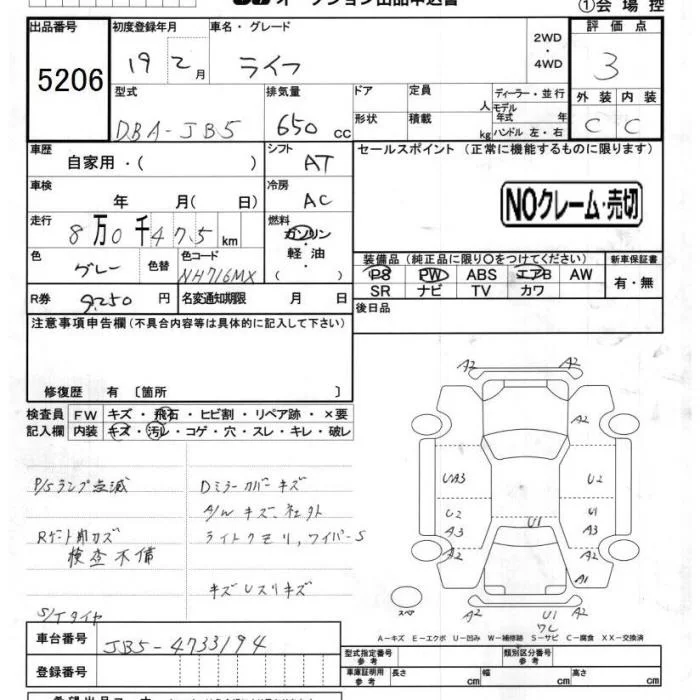 オークション出品申込書
①会場控
出品番号 初度登録年月 車名・グレード 評価点
5206 19 2月 ライフ 2WD・4WD 3
型式 排気量 ドア 定員 人 ディーラー・並行 外装 内装
DBA-JB5 650 cc 形状 積載 kg モデル年式 年 ハンドル 左・右 C C
車歴 シフト セールスポイント(正常に機能するものに限ります)
自家用・( ) AT
車検 冷房
年 月( 日) AC
NOクレーム・売切
走行 燃料
8万0千475km ガソリン・軽油・( )
色 色替 色コード 装備品(純正品に限り○をつけてください) 新車保証書
グレー NH716MX PS PW ABS エアB AW 有・無
SR ナビ TV カワ
R券 9,250円 名変通知期限 月 日 後日品
注意事項申告欄(不具合内容等は具体的に記入して下さい)
修復歴 有 〔箇所 〕
検査員 FW キズ・飛石・ヒビ割・リペア跡・×要
記入欄 内装 キズ・汚レ・コゲ・穴・スレ・キレ・破レ
P/Sランプ点滅 Dミラーカバーキズ
A/Wキズ、社外
Rゲート削キズ ライトクモリ,ワイパーS
検査不備
キズUスリキズ
S/Tタイヤ
A2 A2
A2 A2 A2
UA3 U2
U2 U1 U1
A3 A3
A2 A2
A1
スペア A2 U1 A2
ワレ
A-キズ E-エクボ U-凹み W-補修跡 S-サビ C-腐食 XX-交換済
車台番号 JB5-4733194
型式指定番号 参考 類別区分番号 参考
登録番号 車庫証明用 参考 長さ cm 幅 cm 高さ cm